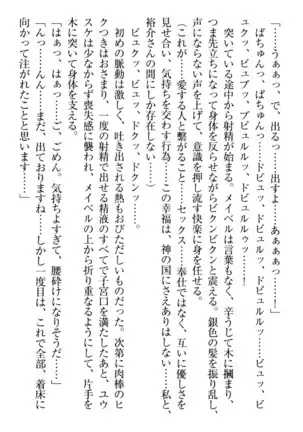 「……うぁぁっ、で、出るっ……出すよ……あぁぁっ！」
ぱちゅんっ、ぱちゅんっ……ドビュッ、ドビュルルッ……ビュッ、ビ
ュクッ、ビュプッ、ブビュルルル、ドビュルルゥッ……！
突いている途中から射精が始まる。メイベルは言葉もなく、辛うじて木に摑まり、
つま先立ちになって身体を反らせながらビクンビクンと震える。銀色の髪を振り乱し、
声にならない声を上げて、意識を押し流す快楽に身を任せる。
（これが……愛する人と繋がること……セックス……奉仕ではなく、互いに優しさを
見せ合い、気持ちを交わす行為……この幸福は、神の国にさえありはしない……私と、
裕介さんの間にしか存在しない……）
ビュクッ、ビュッ、ドクッ、ドクンッ……。
初めの脈動は激しく、吐き出される熱もおびただしいものだった。次第に肉棒のヒ
クつきはおさまり、一度の射精で出せる精液のすべてで子宮口を満たしたあと、ユウ
スケは少なからず喪失感に襲われ、メイベルの上から折り重なるようにして、片手を
木に突いて身体を支える。
「はぁっ、はぁっ……ご、ごめん。気持ちよすぎて、腰砕けになりそうだ……」
「んっ……んん……まだ、出ておりますね……しかし一度目は、これで全部、着床に
向かって注がれたことと思います……」